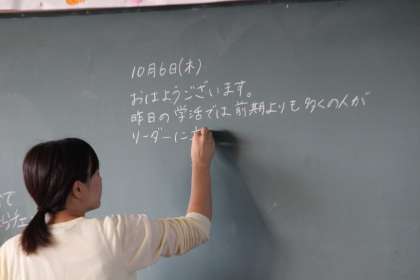 10月6日(木)
おはようございます。
昨日の学活では前期よりも多くの人が
リーダーに